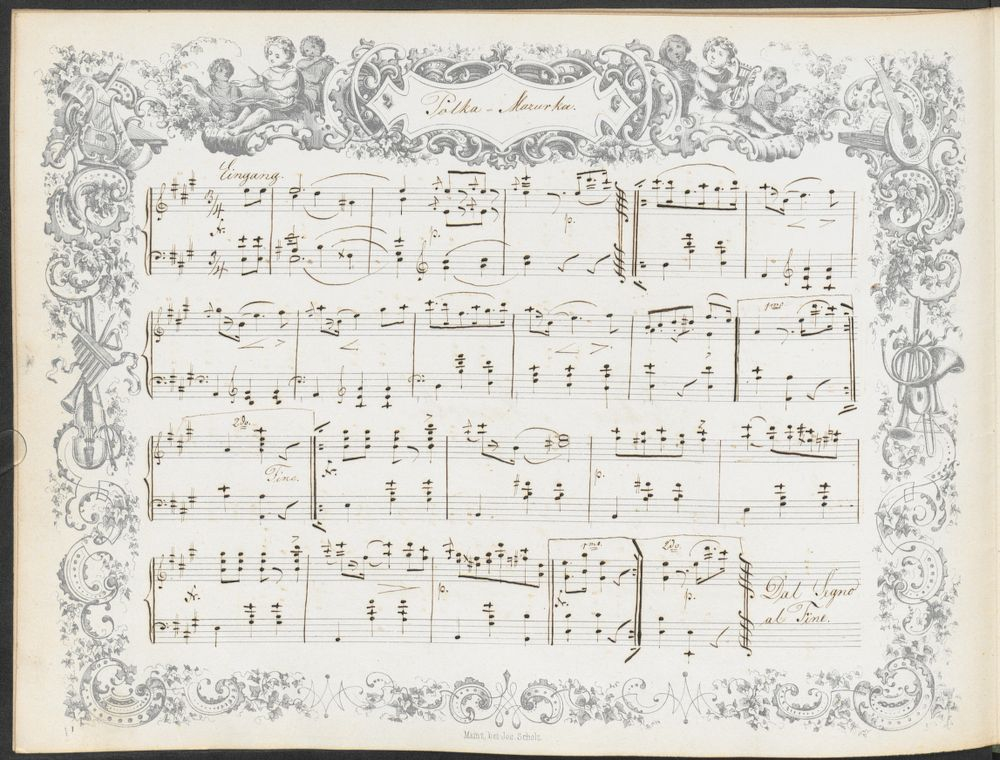 Polka - Mazurka.
Eingang.
3/4
3/4
p.
p.
1mo.
2do.
Fine.
p.
1mo.
2do.
p.
Dal Segno
al Fine.
Mainz, bei Jos. Scholz.